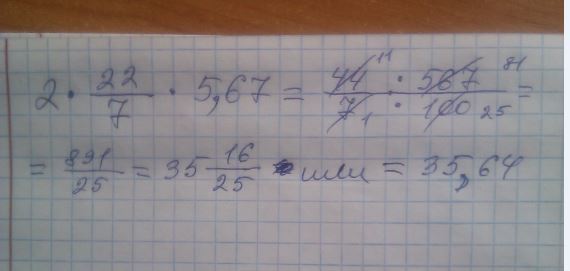 2 · 22/7 · 5,67 = 44 11 · 567 81 / 7 1 · 100 25 =
= 891/25 = 35 16/25 или = 35,64